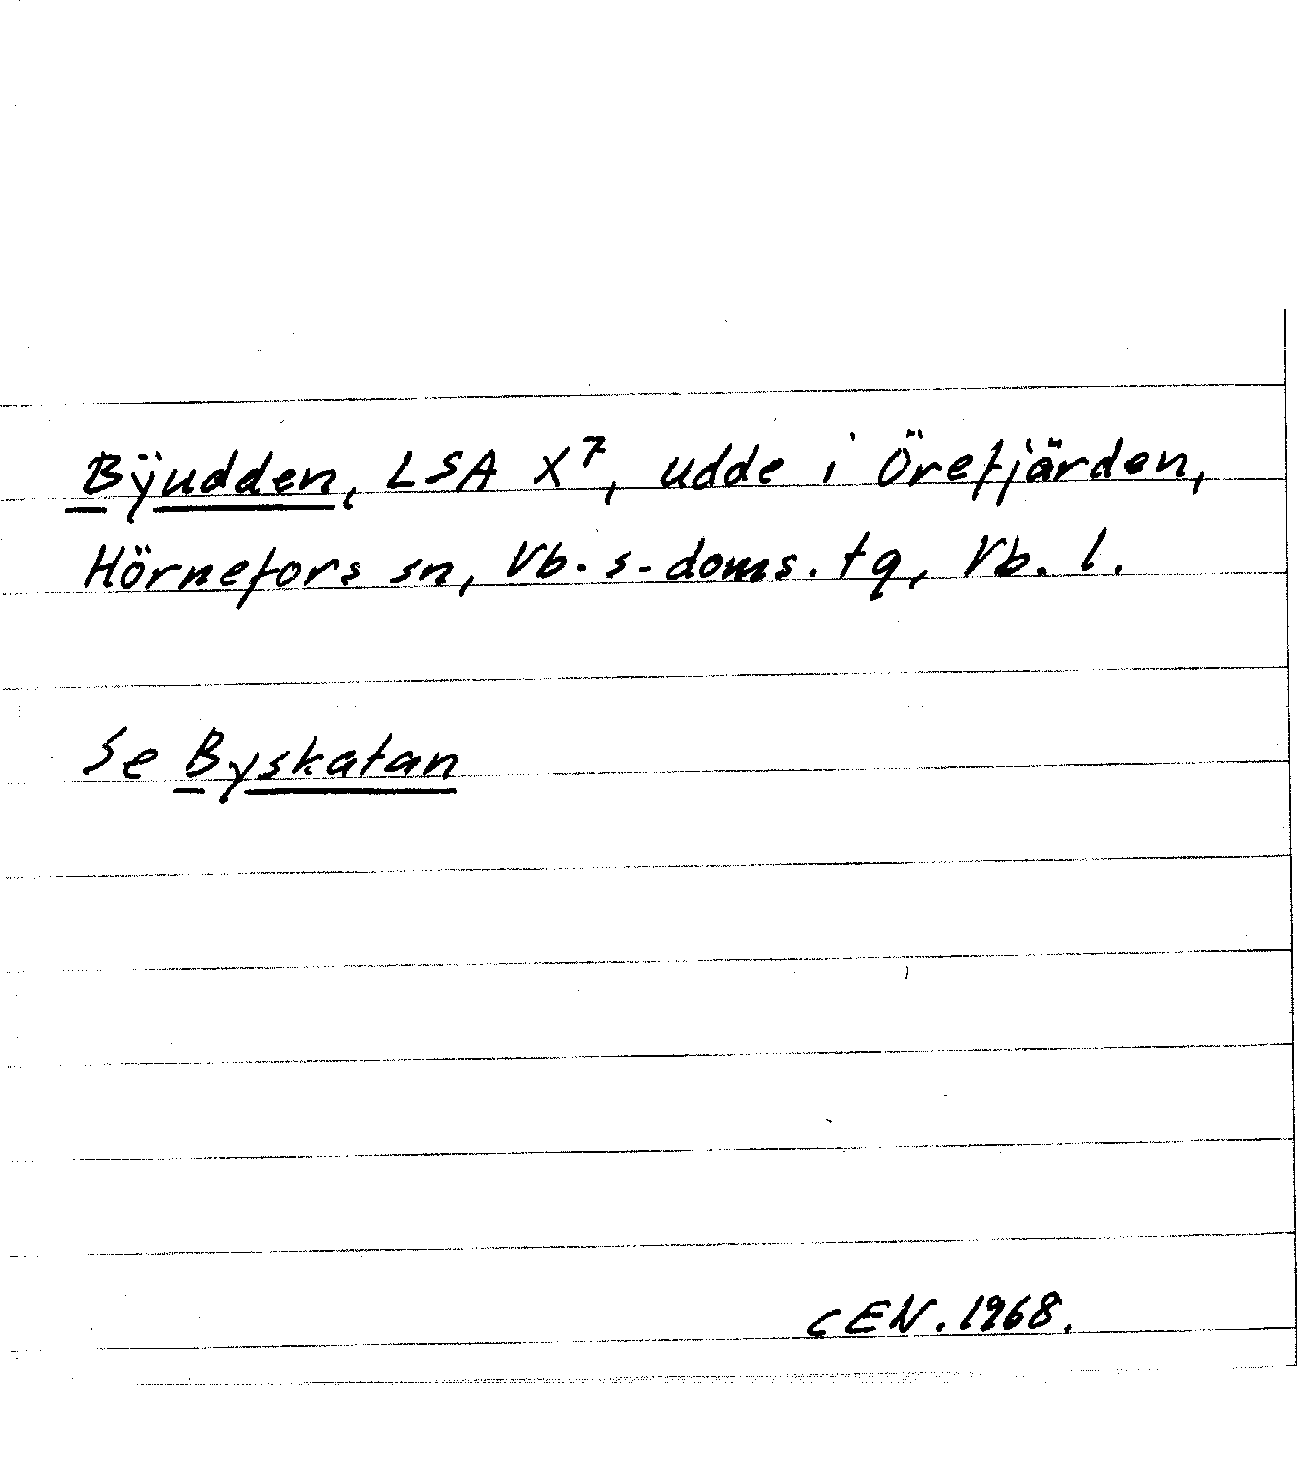 Bÿudden, LSA X⁷, udde i Örefjärden,
Hörnefors sn, Vb. s. doms. tg, Vb. l.
Se Byskatan
CEN. 1968.